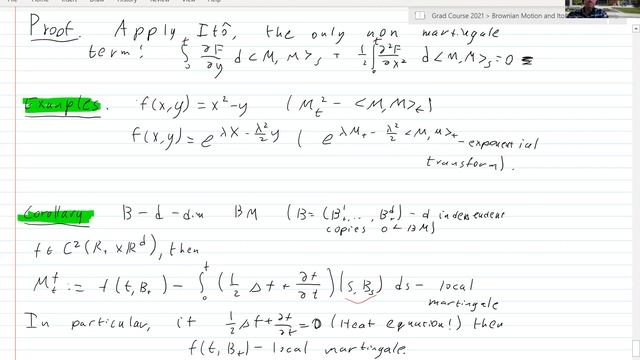 View Insert Actions Tools Help
Grad Course 2021 > Brownian Motion and Ito
Proof. Apply Itô, the only non martingale
term: ∫₀ᵗ ∂F/∂y d<M,M>ₛ + ½∫₀ᵗ ∂²F/∂x² d<M,M>ₛ = 0
Examples. f(x,y) = x² - y (Mₜ² - <M,M>ₜ)
f(x,y) = e^{λx - λ²/2 y} (e^{λMₜ - λ²/2 <M,M>ₜ} - exponential
transform).
Corollary B - d-dim BM (B = (Bₜ¹, ..., Bₜᵈ) - d independent
copies of BM)
f ∈ C²(R₊ × Rᵈ), then
Mₜᶠ := f(t, Bₜ) - ∫₀ᵗ (½ Δf + ∂f/∂t)(s, Bₛ) ds - local
martingale
In particular, if ½ Δf + ∂f/∂t = 0 (Heat equation!) then
f(t, Bₜ) - local martingale.